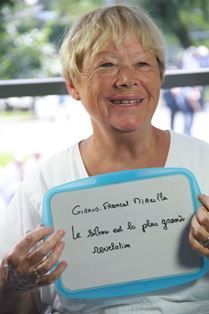 Giraud. Francal Mireille
Le silence est la plus grande
revelation